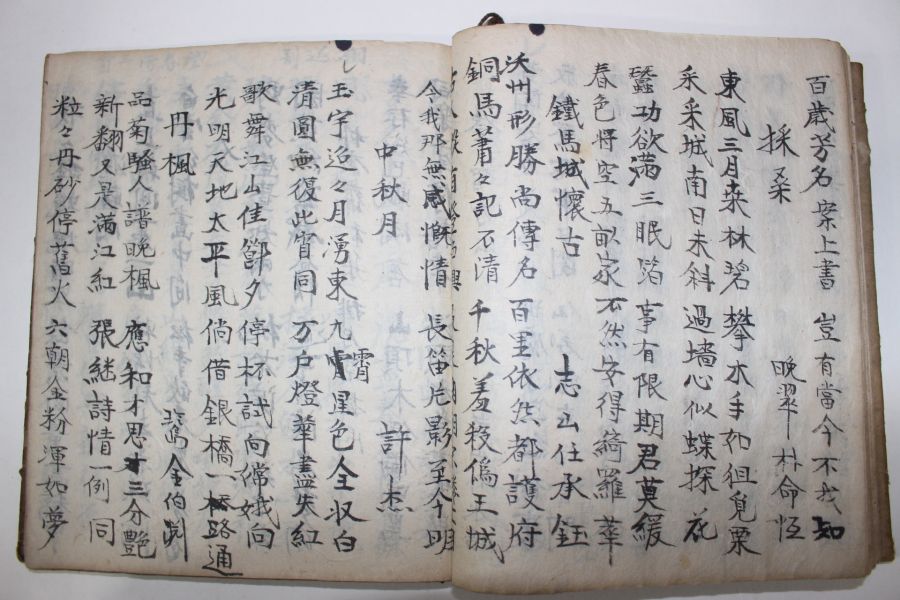 百歲芳名案上書 豈有當今不我知
採桒 晩翠 朴命恒
東風三月桒林碧 攀木手如狙覓栗
采采城南日未斜 過墻心似蝶探花
蠶功欲滿三眠箔 事有限期君莫緩
春色將空五畝家 不然安得綺羅華
鐵馬城懷古 志山 任承鈺
沃州形勝尚傳名 百里依然都護府
銅馬蕭々記不清 千秋羞殺僞王城
令我那無感慨情 長笛片影至今明
中秋月 許杰
玉宇迢々月湧東 九霄星色全収白
清圓無復此宵同 万户燈華盡失紅
歌舞江山佳節夕 停杯試向嫦娥向
光明天地太平風 倘借銀橋一路通
丹楓 金伯
品菊騷人譜晩楓 應和才思三分艶
新翻又是滿江紅 張継詩情一例同
粒々丹砂停舊火 六朝金粉渾如夢